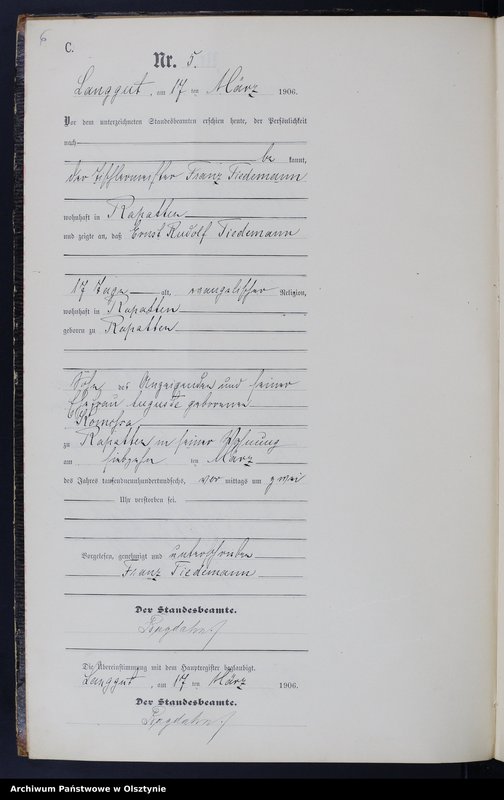 6
C.
Nr. 5.
Langgut, am 17 ten März 1906.
Vor dem unterzeichneten Standesbeamten erschien heute, der Persönlichkeit
nach
be kannt,
der Tischlermeister Franz Tiedemann
wohnhaft in Rapatten
und zeigte an, daß Ernst Rudolf Tiedemann
17 Tage alt, evangelischer Religion,
wohnhaft in Rapatten
geboren zu Rapatten
Sohn des Anzeigenden und seiner
Ehefrau Auguste geborenen
Komossa
zu Rapatten in seiner Wohnung
am siebzehn ten März
des Jahres tausendneunhundertundsechs, vor mittags um zwei
Uhr verstorben sei.
Vorgelesen, genehmigt und unterschrieben
Franz Tiedemann
Der Standesbeamte.
Die Übereinstimmung mit dem Hauptregister beglaubigt.
Langgut, am 17 ten März 1906.
Der Standesbeamte.
Archiwum Państwowe w Olsztynie